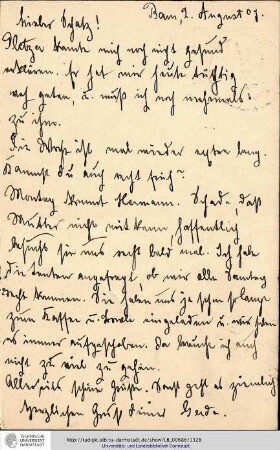 Mein lieber Schatz! Bonn, 2. August 07.
Plötzen konnte mich noch nicht gesund
erklären. Er hat mir heute tüchtig
weh getan, u. muß ich noch mehrmals
zu ihm.
Die Woche ist mal wieder lang.
Kannst Du auch recht
Montag kommt Hermann. Schade, daß
Mutter nicht mit kann hoffentlich
besucht sie uns recht bald mal. Ich habe
Die Tanten angefragt, ob wir alle Sonntag
recht kommen. Sie haben uns ja schon so lange
zum Kaffee u. eingeladen u. wir haben
es immer aufgeschoben. Da brauche ich auch
nicht zu viel zu gehen.
Allerseits schöne Grüße. Sonst geht es ziemlich
Herzlichen Gruß Deine Gerda.
TECHNISCHE UNIVERSITÄT DARMSTADT
http://tudigit.ulb.tu-darmstadt.de/show/
Universitäts- und Landesbibliothek Darmstadt